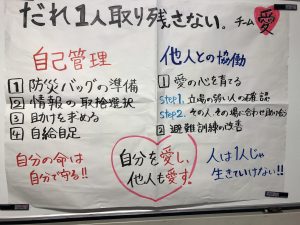 だれ1人取り残さない。 チーム愛
自己管理
1 防災バッグの準備
2 情報の取捨選択
3 助けを求める
4 自給自足
自分の命は
自分で守る!!
他人との協働
1 愛の心を育てる
step1. 立場の弱い人の確認
step2. その人、その場に合わせ助け合う
2 避難訓練の改善
自分を愛し、
他人も愛す。
人は1人じゃ
生きていけない!!